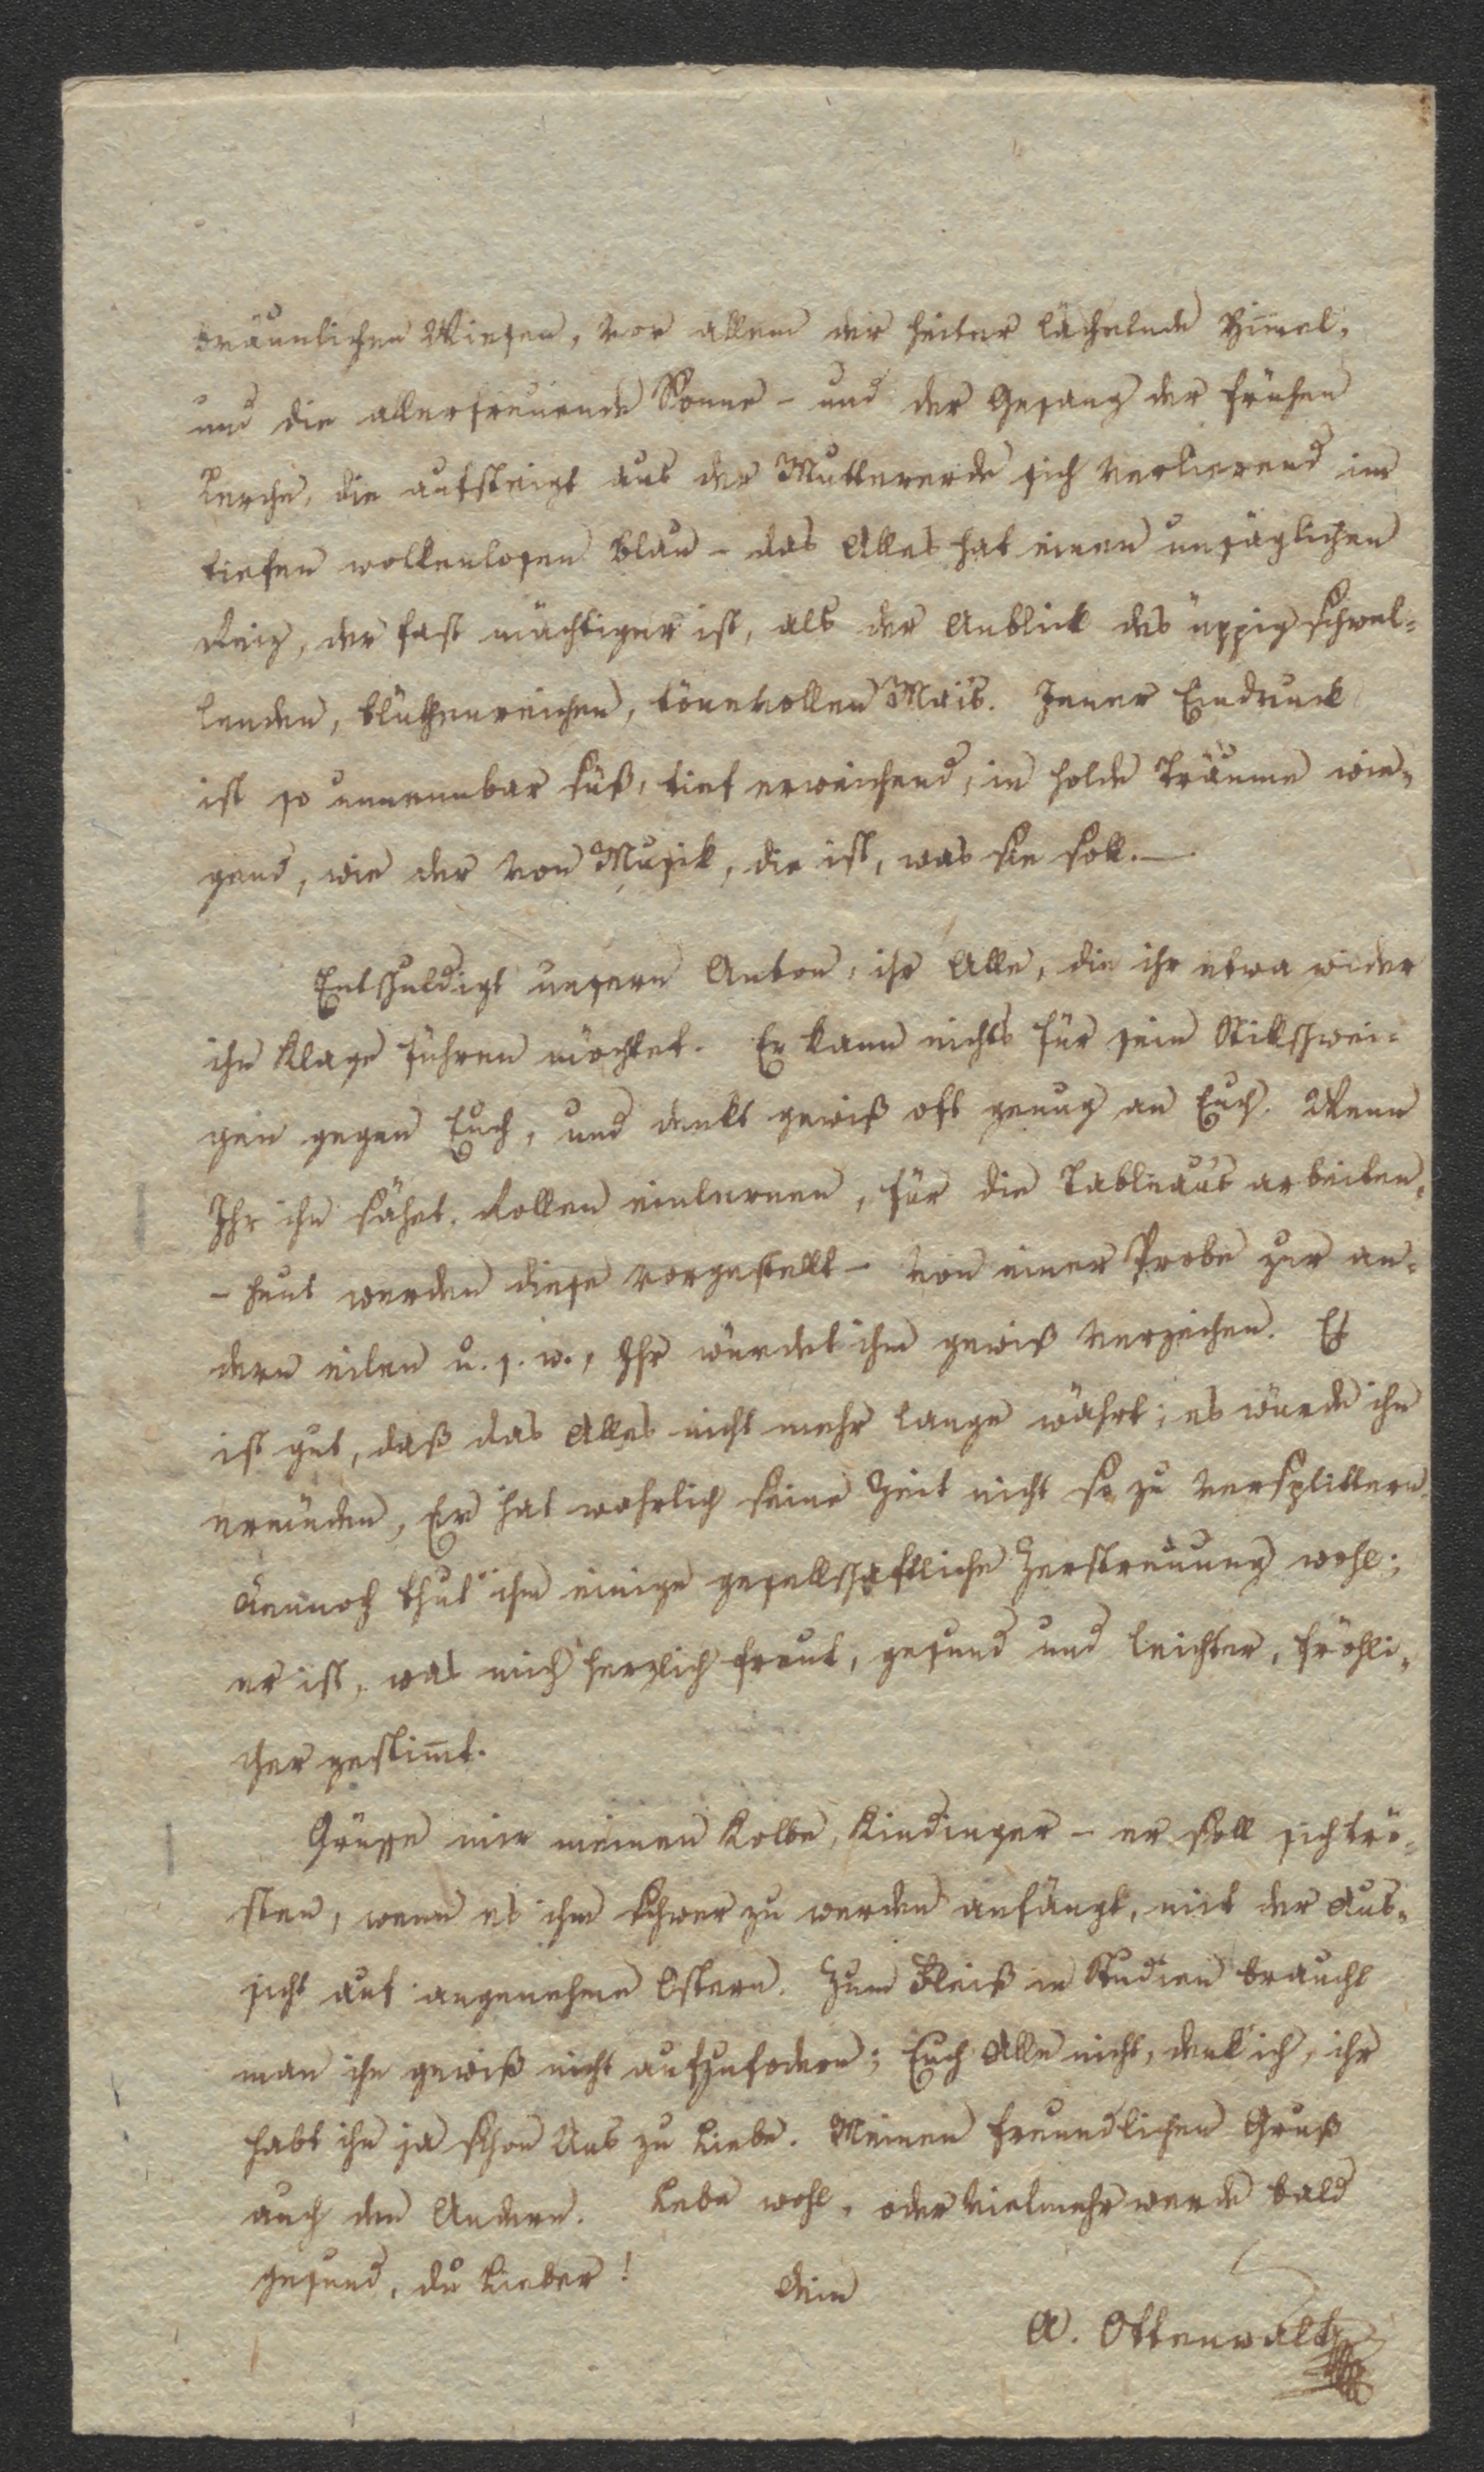 bräunlichen Wiesen, vor allem der heiter lächelnde Him̅el,
und die allerfreuende Sonne – und der Gesang der frühen
Lerche, die aufsteigt aus der Muttererde sich verlierend im
tiefen wolkenlosen Blau – das Alles hat einen unsäglichen
Reiz, der fast mächtiger ist, als der Anblick des üppig schwel=
lenden, blüthenreichen, tönevollen Mai's. Jener Eindruck
ist so unnennbar süß, tief erweichend, in holde Träume wie=
gend, wie der von Musik, die ist, was sie soll. —
Entschuldigt unsern Anton, ihr Alle, die ihr etwa wider
ihn Klage führen möchtet. Er kann nichts für sein Stillschwei=
gen gegen Euch, und denkt gewiß oft genug an Euch. Wenn
Ihr ihn sähet, Rollen einlernen, für die Tableaus arbeiten,
– heut werden diese vorgestellt – von einer Probe zur an=
dern eilen u. s. w., Ihr würdet ihm gewiß verzeihen. Es
ist gut, daß das Alles nicht mehr lange währt; es würde ihn
ermüden, Er hat wahrlich seine Zeit nicht so zu versplittern.
Dennoch thut ihm einige gesellschaftliche Zerstreuung wohl;
er ist, was mich herzlich freut, gesund und leichter, fröhli=
cher gestim̅t.
Grüsse mir meinen Kolbe, Kindinger – er soll sich trö=
sten, wenn es ihm schwer zu werden anfängt, mit der Aus=
sicht auf angenehme Ostern. Zum Fleiß in Studien braucht
man ihn gewiß nicht aufzufodern; Euch Alle nicht, denk' ich, ihr
habt ihn ja schon Uns zu Liebe. Meinen freundlichen Gruß
auch den Andern. Lebe wohl, oder vielmehr werde bald
gesund, du Lieber!
Dein
A. Ottenwalt